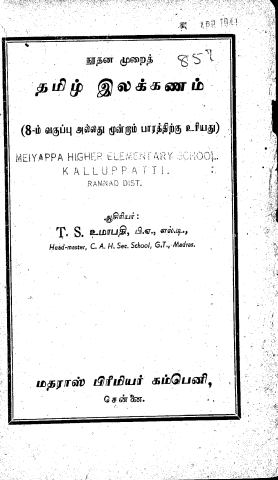 APR 1941
857
நூதன முறைத்
தமிழ் இலக்கணம்
(8-ம் வகுப்பு அல்லது மூன்றாம் பாரத்திற்கு உரியது)
MEIYAPPA HIGHER ELEMENTARY SCHOOL.
KALLUPPATTI.
RAMNAD DIST.
ஆசிரியர்:
T. S. உமாபதி, பி.ஏ., எல்.டி.,
Head-master, C. A. H. Sec. School, G.T., Madras.
மதராஸ் பிரிமியர் கம்பெனி,
சென்னை.